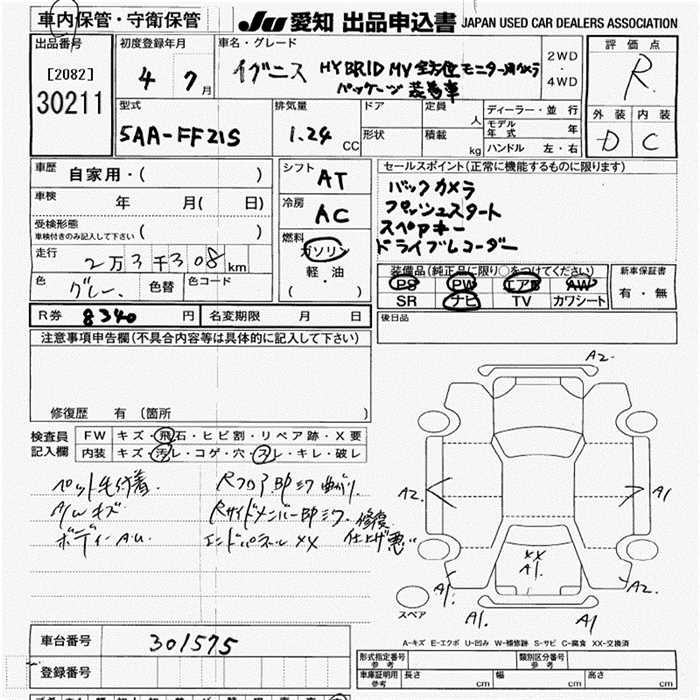 車内保管・守衛保管
JU 愛知 出品申込書 JAPAN USED CAR DEALERS ASSOCIATION
出品番号 [2082] 30211
初度登録年月 4 7月
車名・グレード イグニス HYBRID MV 全方位モニター用カメラ
パッケージ装着車
2WD・4WD
評価点 R
外装 内装
D C
型式 5AA-FF21S
排気量 1.24 CC
ドア 定員 人
形状 積載 kg
ディーラー・並行
モデル年式 年
ハンドル 左・右
車歴 自家用・( )
車検 年 月( 日)
受検形態
車検付きのみ記入して下さい ( )
走行 2万3千308km
色 グレー 色替 色コード
シフト AT
冷房 AC
燃料 ガソリン
軽・油
( ・ )
セールスポイント(正常に機能するものに限ります)
バックカメラ
プッシュスタート
スペアキー
ドライブレコーダー
装備品(純正品に限り○をつけてください)
PS PW エアB AW
SR ナビ TV カワシート
新車保証書
有・無
R券 8340 円 名変期限 月 日
後日品
注意事項申告欄(不具合内容等は具体的に記入して下さい)
修復歴 有 (箇所 )
検査員記入欄
FW キズ・飛石・ヒビ割・リペア跡・X要
内装 キズ・汚レ・コゲ・穴・スレ・キレ・破レ
ペット毛付着 Rフロア、BPミワ曲がり。
A/Wキズ Rサイドメンバー BPミワ 修復
ボディーA.U. エンドパネル XX 仕上げ悪い
A2
A2 A1
XX
A1
A1 A2
スペア A1 A1
A-キズ E-エクボ U-凹み W-補修跡 S-サビ C-腐食 XX-交換済
車台番号 301575
登録番号
形式指定番号 参考 類別区分番号 参考
車庫証明用 参考 長さ cm 幅 cm 高さ cm